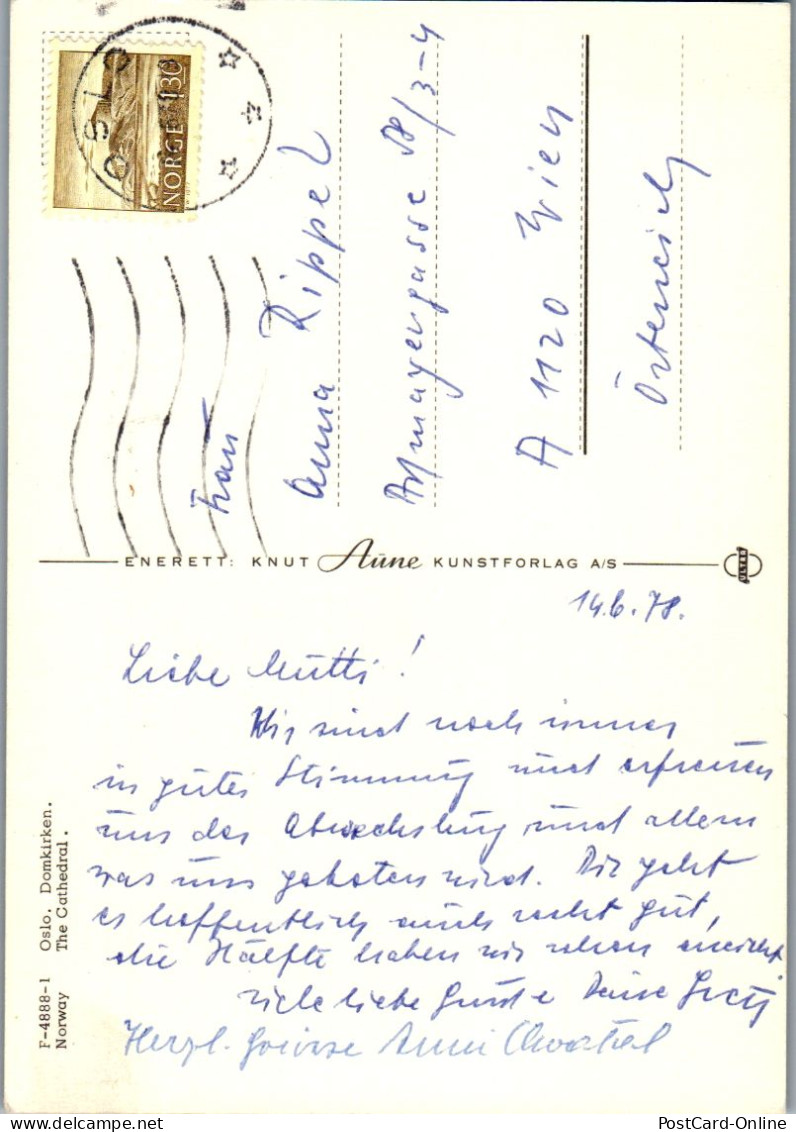 OSLO
NORGE 130
Frau
Anna Rippel
Aßmayergasse 58/3-4
A 1120 Wien
Österreich
ENERETT: KNUT Aune KUNSTFORLAG A/S
ULTRA
14.6.78.
Liebe Mutti!
Wir sind noch immer
in guter Stimmung und erfreuen
uns der Abwechslung und allem
was uns geboten wird. Dir geht
es hoffentlich auch recht gut,
die Hälfte haben wir schon erreicht
viele liebe Grüße Deine
Herzl. Grüsse Anni
F-4888-1 Oslo. Domkirken.
Norway The Cathedral.
PostCard-Online